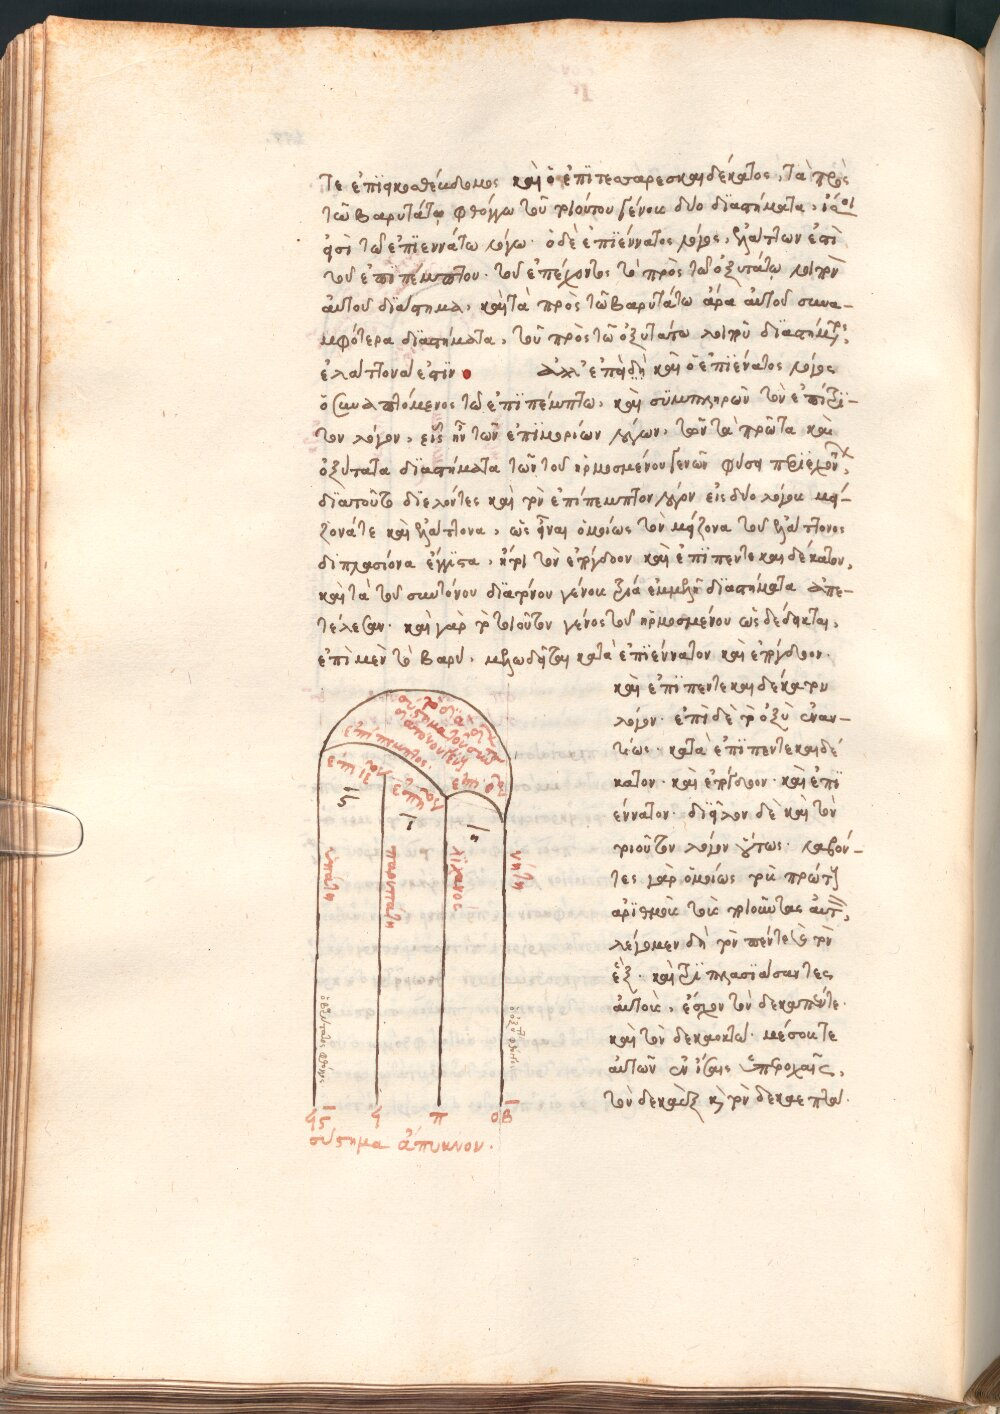 τε ἐπιεικοσθέκδομος καὶ ὁ ἐπιτεσσαρεσκαιδέκατος, τὰ πρὸς
τῶ βαρυτάτω φθόγγω τοῦ τοιούτου γένους δύο διαστήματα,
τῶ ἐπιεννάτω λόγω· ὁ δὲ ἐπιέννατος λόγος, ἐλάττων ἐστὶ
τοῦ ἐπιπέμπτου· τοῦ ἐπέχοντος τὸ πρὸς τῶ ὀξυτάτω λοιπὸν
αὐτοῦ διάστημα, καὶ τὰ πρὸς τῶ βαρυτάτω ἄρα αὐτοῦ συνα-
μφότερα διαστήματα, τοῦ πρὸς τῶ ὀξυτάτω λοιποῦ διαστήματος,
ἐλάττονα ἐστὶν ἀλλ' ἐπειδὴ καὶ ὁ ἐπιένατος λόγος
ὁ συναπτόμενος τῶ ἐπιπέμπτω, καὶ συμπληρῶν τὸν ἐπίτρι-
τον λόγον, εἷς ἦν τῶν ἐπιμορίων λόγων, τῶν τὰ πρῶτα καὶ
ὀξύτατα διαστήματα τῶν τοῦ ἡρμοσμένου γενῶν φύση περιέχον,
διατοῦτο διελόντες καὶ τὸν ἐπίπεμπτον λόγον εἰς δύο λόγους μεί-
ζονά τε καὶ ἐλάττονα, ὡς εἶναι ὁμοίως τὸν μείζονα τοῦ ἐλάττονος
διπλασίονα ἔγγιστα, ἤτοι τὸν ἐπόγδοον καὶ ἐπιπεντεκαιδέκατον,
καὶ τὰ τοῦ συντόνου διατόνου γένους τρία ἐμμελῆ διαστήματα ἀπε-
τέλεσαν· καὶ γὰρ τὸ τοιοῦτον γένος τοῦ ἡρμοσμένου ὡς δέδεικται,
ἐπὶ μὲν τὸ βαρύ, μελωδεῖται κατὰ ἐπιέννατον καὶ ἐπόγδοον·
καὶ ἐπιπεντεκαιδέκατον
λόγον· ἐπὶ δὲ τὸ ὀξὺ ἐναν-
τίως· κατὰ ἐπιπεντεκαιδέ
κατον· καὶ ἐπόγδοον· καὶ ἐπι
έννατον· δῆλον δὲ καὶ τὸν
τοιοῦτον λόγον οὕτως· λαβόν-
τες γὰρ ὁμοίως τοὺς πρώτους
ἀριθμοὺς τοὺς τοιούτους αὐτ,
λέγομεν δὴ τὸν πέντε καὶ τὸν
ἕξ· καὶ τριπλασιάσαντες
αὐτοὺς, ἔσχον τὸν δεκαπέντε·
καὶ τὸν δεκαοκτώ· μέσους τε
αὐτῶν ἐν ἴσαις ὑπεροχαῖς,
τὸν δεκαὲξ καὶ τὸν δεκαεπτά·
ἐπίπεμπτος·
ὑπάτη
παρυπάτη
λίχανος
νήτη
ὁ βαρύτατος φθόγγος
ϟϛ ϟ π οβ
σύστημα ἄπυκνον·